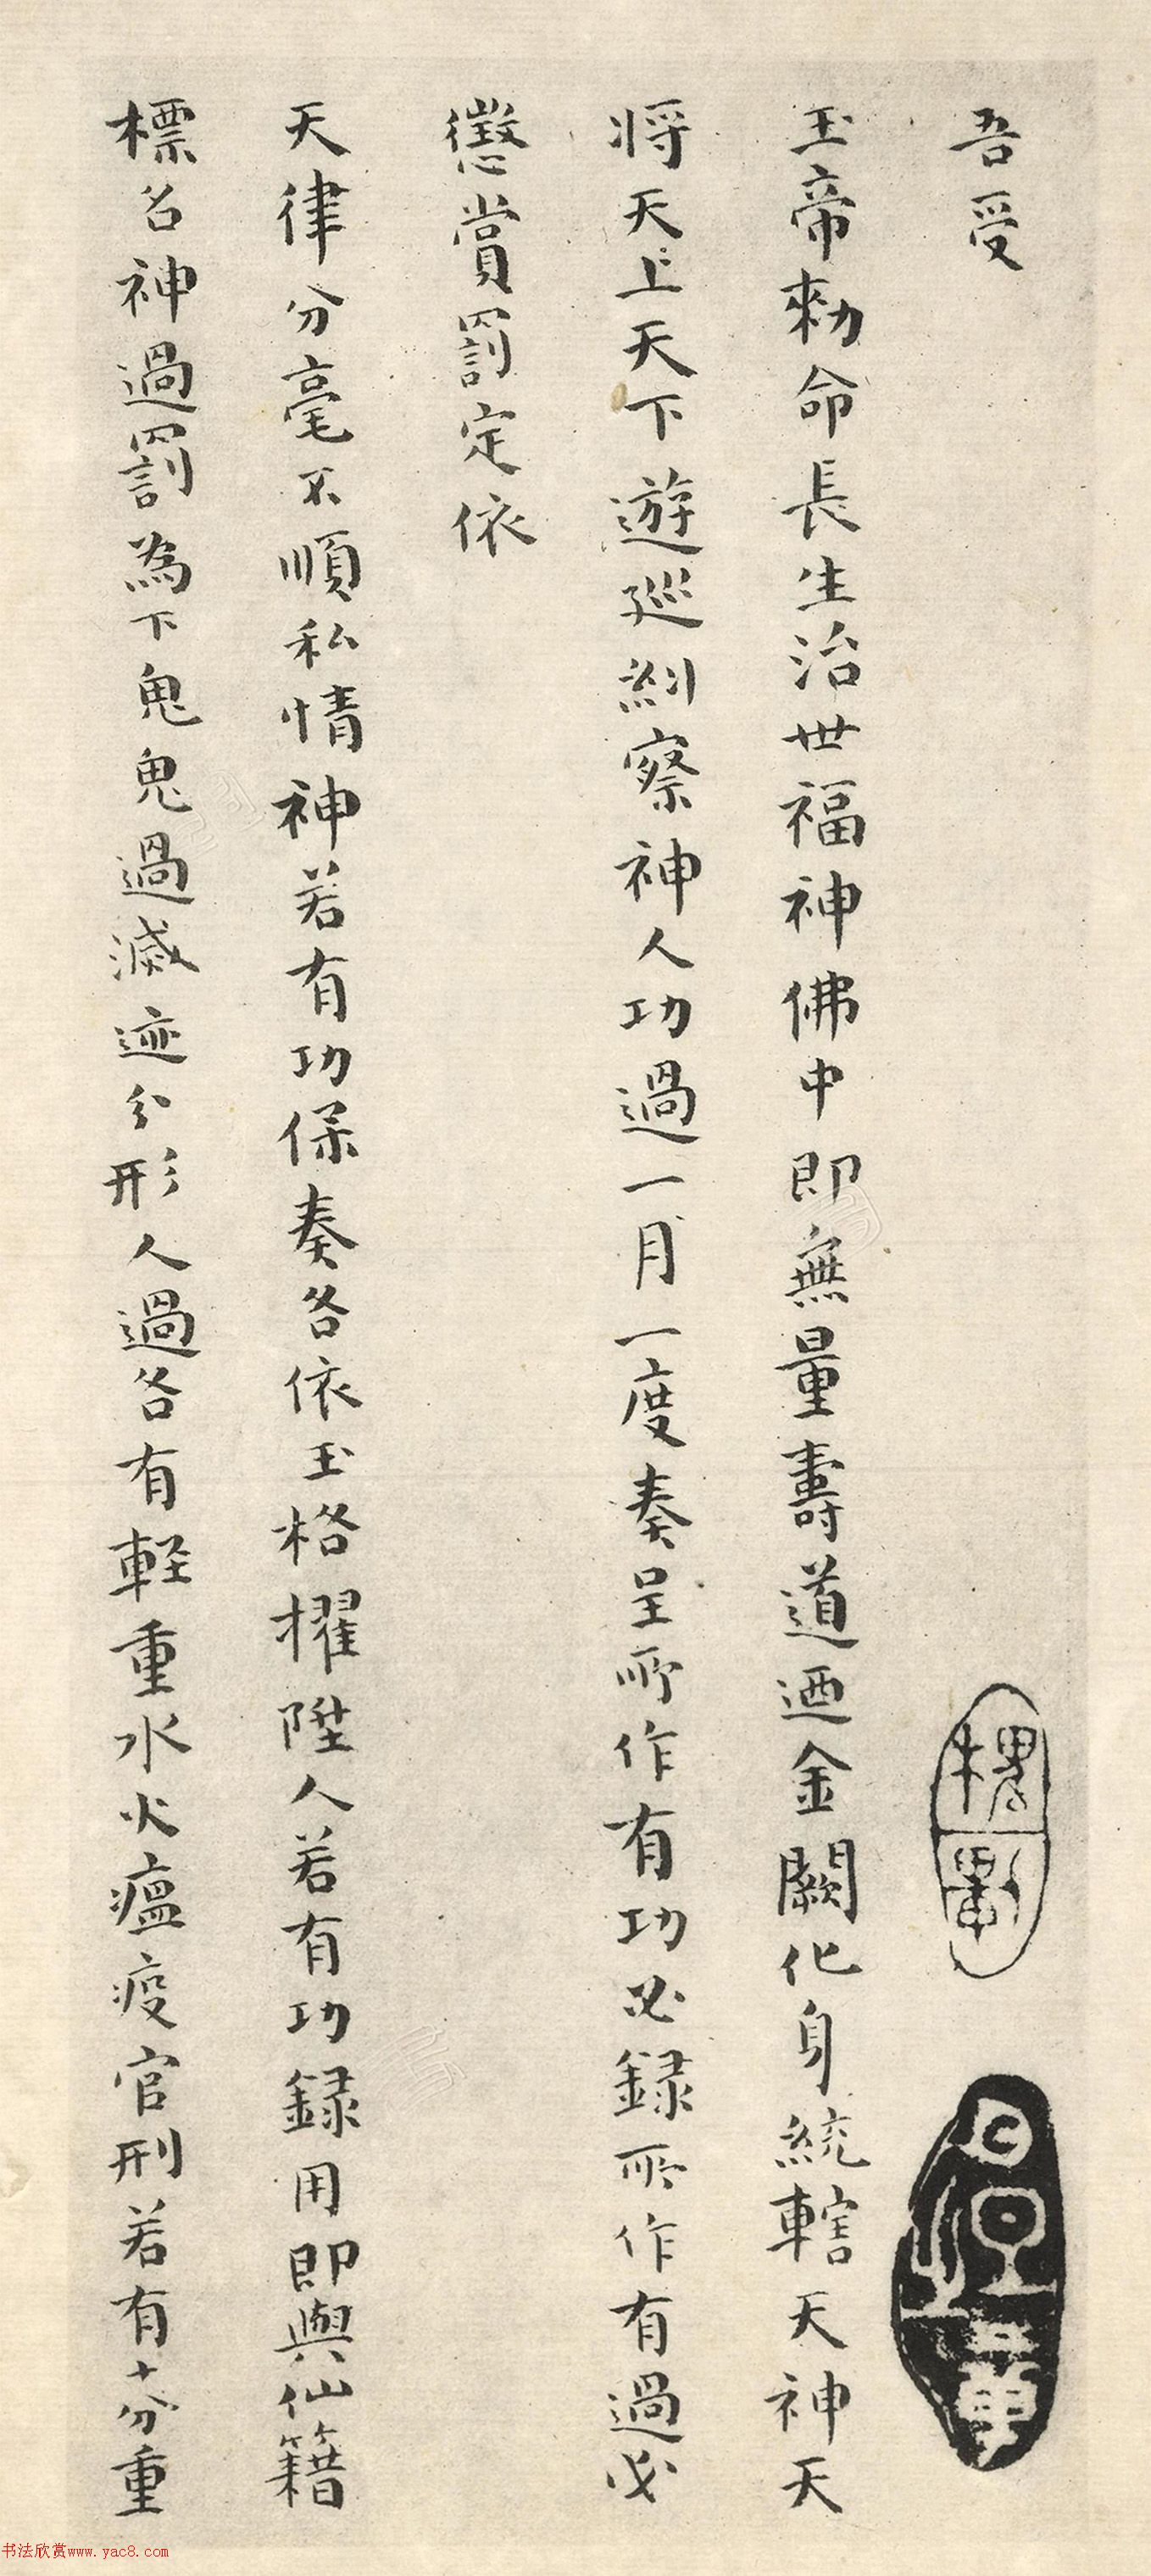 吾受
玉帝勑命長生治世福神佛中即無量壽道迺金闕化身統轄天神天
将天上天下遊廵糾察神人功過一月一度奏呈所作有功必録所作有過必
懲賞罰定依
天律分毫不順私情神若有功保奏各依玉格擢陞人若有功録用即與仙籍
標名神過罰為下鬼鬼過滅迹分形人過各有軽重水火瘟疫官刑若有十分重
书法欣赏www.yac8.com